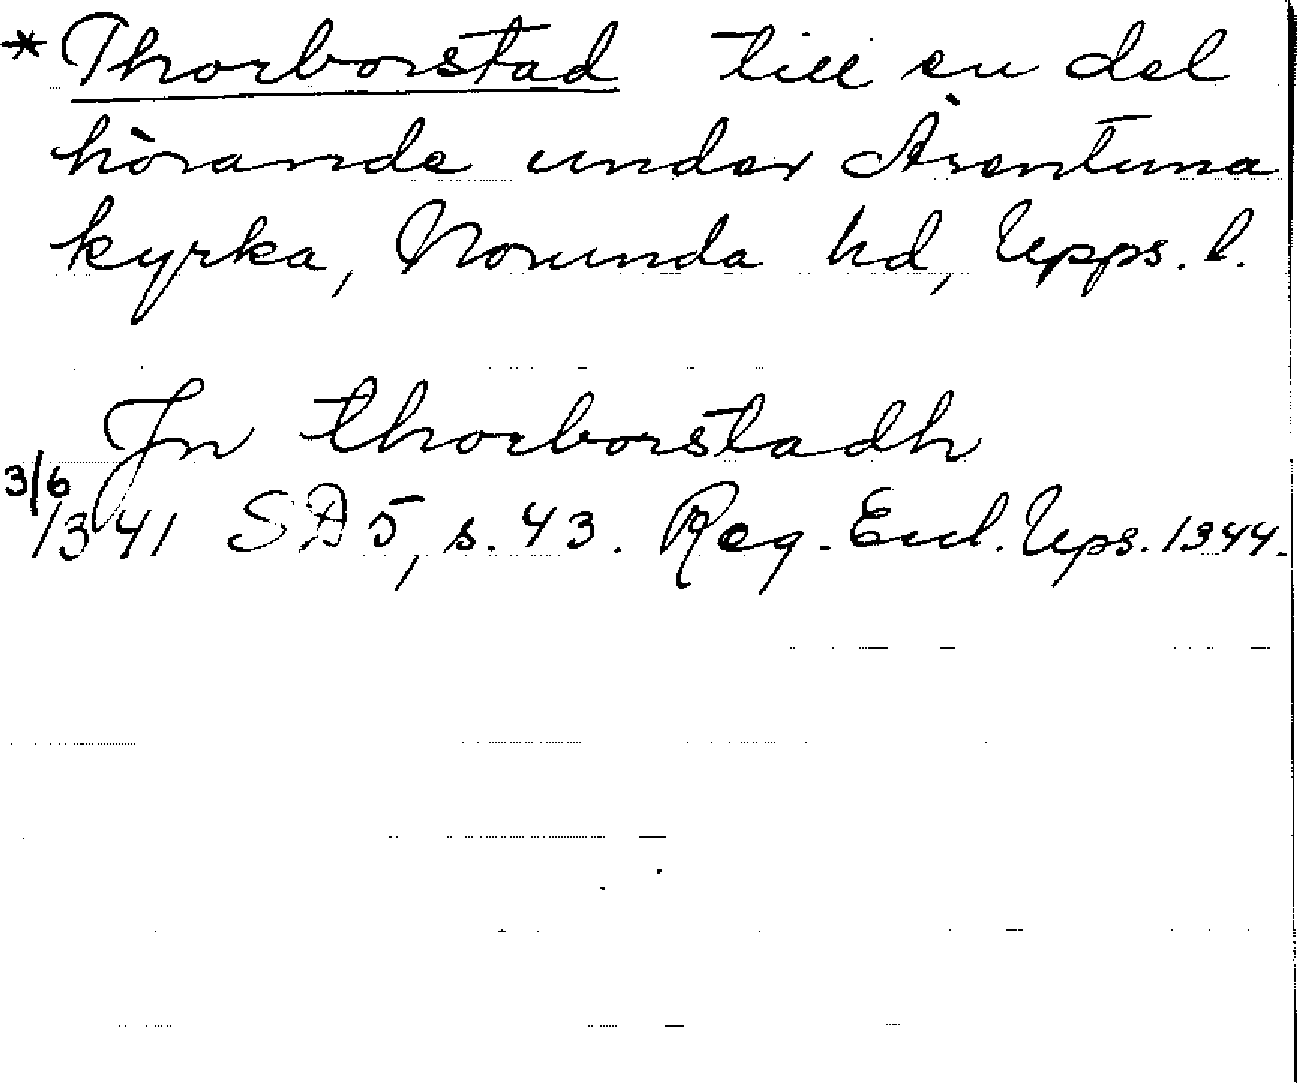 * Thorborstad till en del
hörande under Ärentuna
kyrka, Norunda hd, Upps. l.
Jn thorborstadh
3/6
1341 SD 5, s. 43. Reg. Eccl. Ups. 1344.